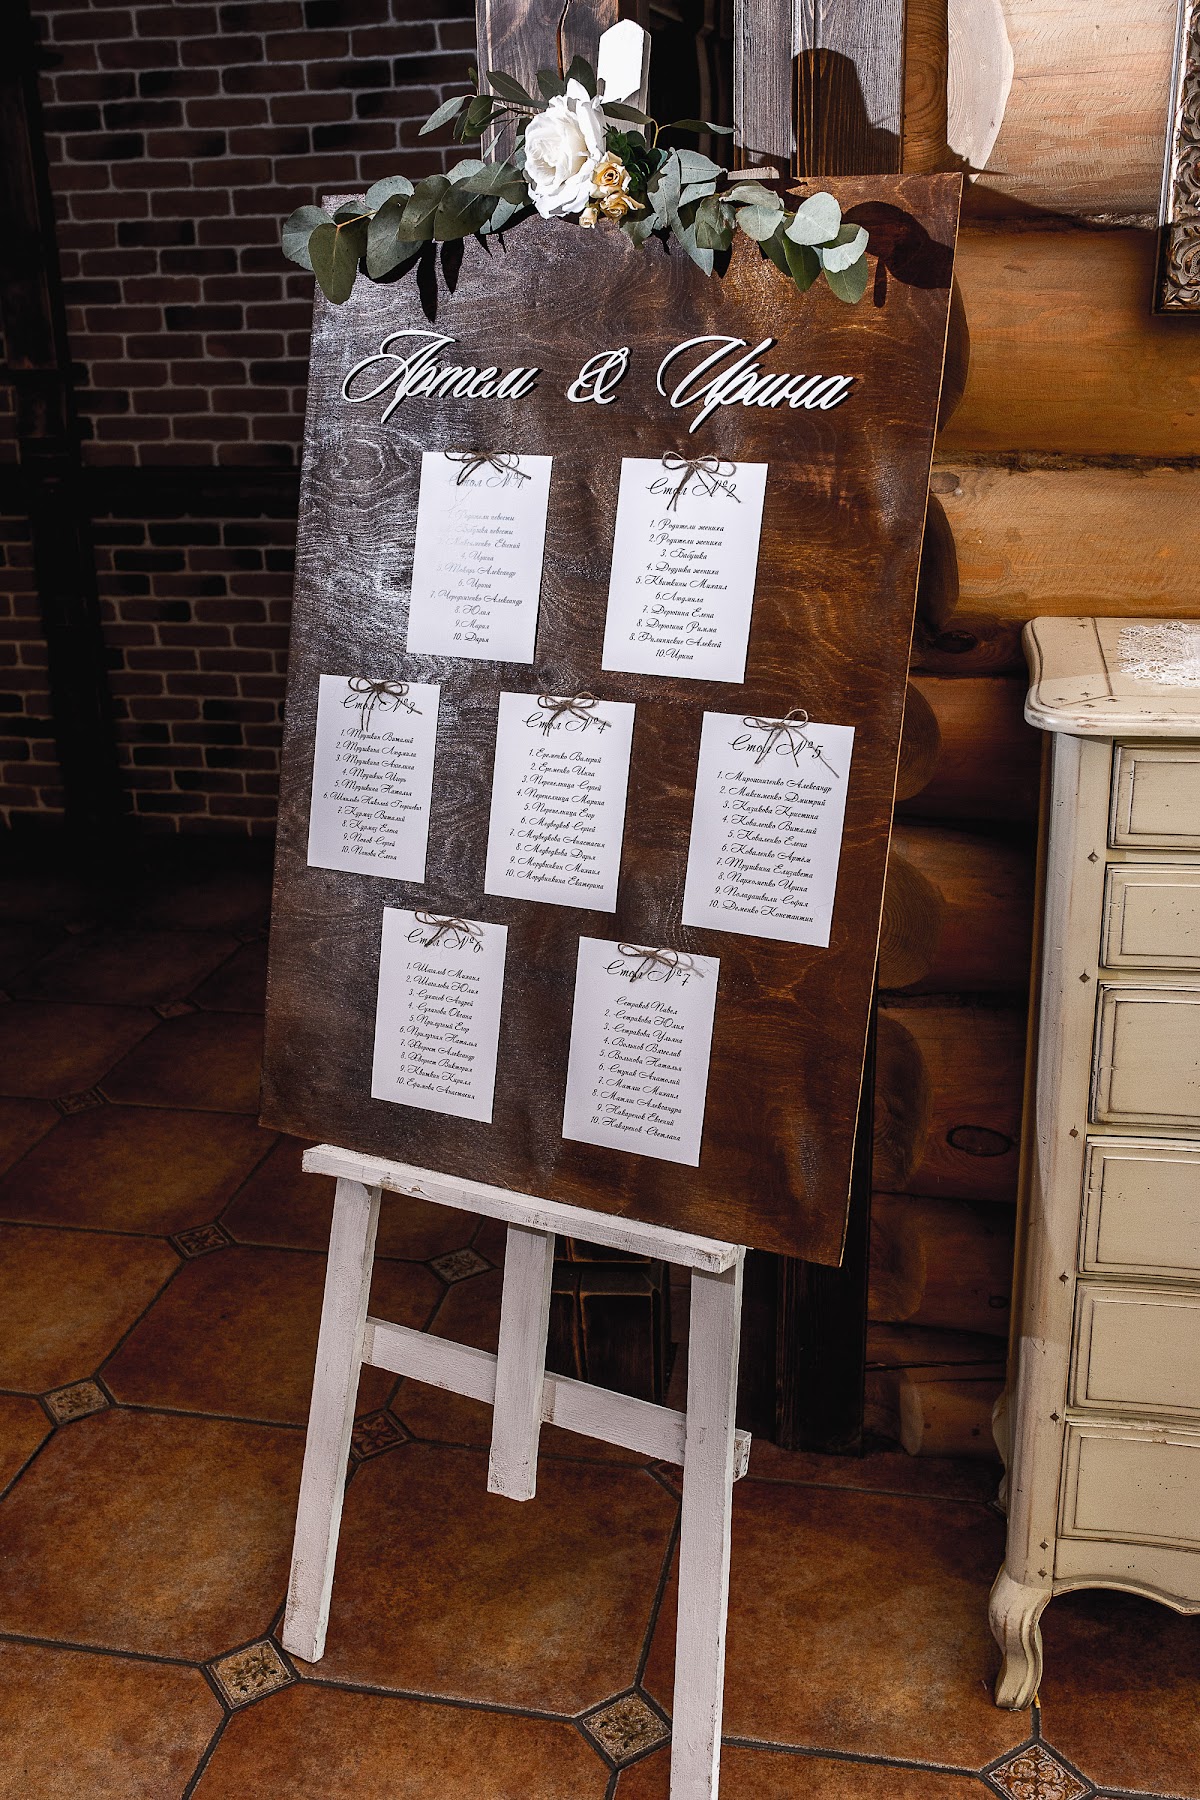 Артем & Ирина
Стол №1
1. Родители невесты
2. Бабушка невесты
3. Максименко Евгений
4. Ирина
5. Товида Александр
6. Ирина
7. Чередниченко Александр
8. Юлия
9. Мария
10. Дарья
Стол №2
1. Родители жениха
2. Родители жениха
3. Бабушка
4. Дедушка жениха
5. Квиткины Михаил
6. Людмила
7. Дерюгина Елена
8. Дерюгина Римма
8. Филинские Алексей
10. Ирина
Стол №3
1. Трушкин Виталий
2. Трушкина Людмила
3. Трушкина Ангелина
4. Трушкин Игорь
5. Трушкина Наталья
6. Николай Георгиевич
7. Курмаз Виталий
8. Курмаз Елена
9. Попов Сергей
10. Попова Елена
Стол №4
1. Еременко Валерий
2. Еременко Инна
3. Перепелица Сергей
4. Перепелица Марина
5. Перепелица Егор
6. Медведков Сергей
7. Медведкова Анастасия
8. Медведкова Дарья
9. Михаил
10. Екатерина
Стол №5
1. Мирошниченко Александр
2. Максименко Дмитрий
3. Казакова Кристина
4. Коваленко Виталий
5. Коваленко Елена
6. Коваленко Артём
7. Трушкина Елизавета
8. Пархоменко Ирина
9. Поладашвили София
10. Деменко Константин
Стол №6
1. Шагалов Михаил
2. Шагалова Юлия
3. Суханов Андрей
4. Суханова Оксана
5. Прилучный Егор
6. Прилучная Наталья
7. Хворост Александр
8. Хворост Виктория
9. Квиткин Кирилл
10. Ефимова Анастасия
Стол №7
Сетраков Павел
2. Сетракова Юлия
3. Сетракова Ульяна
4. Вольнов Вячеслав
5. Вольнова Наталья
6. Ступак Анатолий
7. Матлы Михаил
8. Матлы Александра
9. Накаренов Евгений
10. Накаренов Светлана